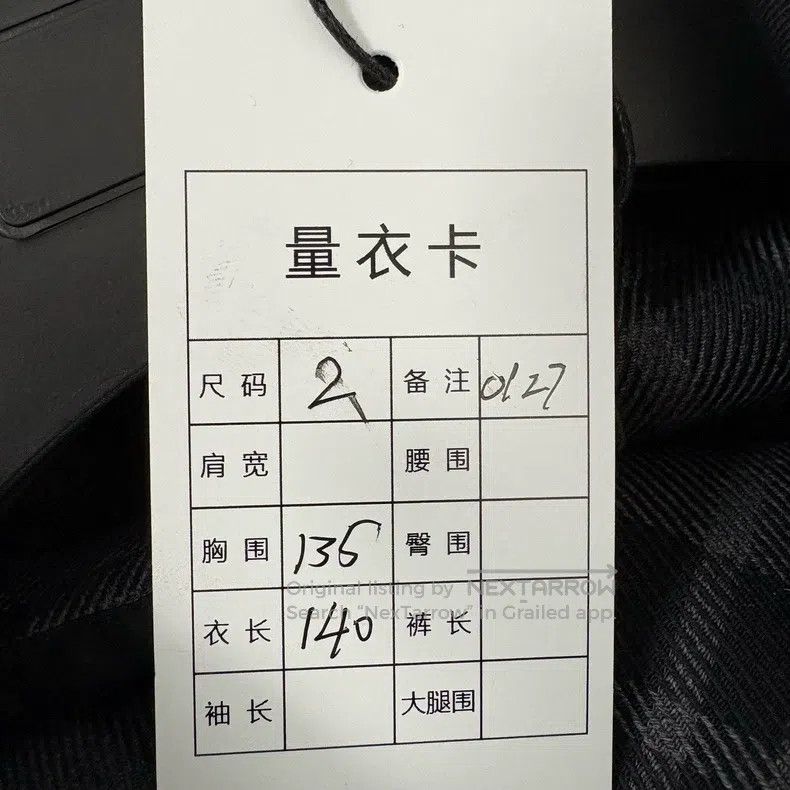 量衣卡
尺码 2 备注 0127
肩宽 腰围
胸围 136 臀围
Original listing by NEXTARROW
Search "NexTarrow" in Grailed app
衣长 140 裤长
袖长 大腿围